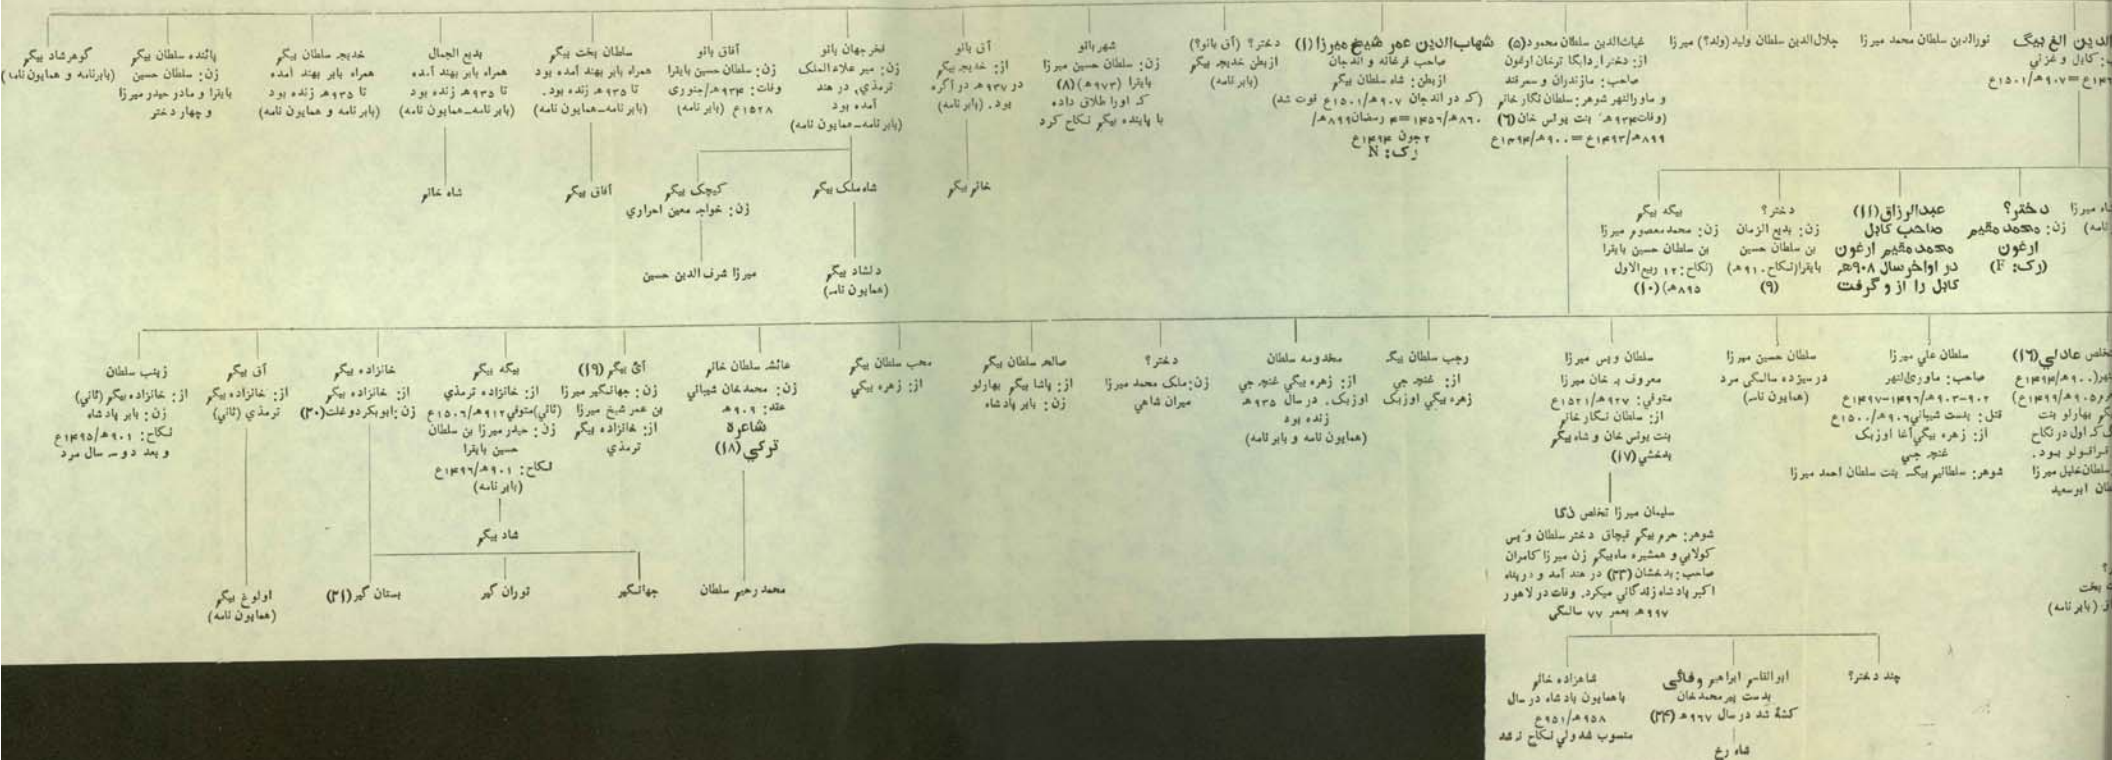 الدین الغ بیگ
کابل و غزنی
۹۰۷ھ/۱۵۰۱ع
نورالدین سلطان محمد میرزا
جلال‌الدین سلطان ولید (ولد؟) میرزا
غیاث‌الدین سلطان محمود (۵)
از: دختر اردابگا ترخان ارغون
صاحب: مازندران و سمرقند
و ماورالنهر شوهر: سلطان نگار خانم
بنت یونس خان (۶)
۸۹۹ھ/۱۴۹۳ع = ۹۰۰ھ/۱۴۹۴ع
شهاب‌الدین عمر شیخ میرزا (۱)
صاحب فرغانه و اندجان
از بطن: شاه سلطان بیگم
(که در اندجان ۹۰۷ھ/۱۵۰۱ع فوت شد)
۸۶۰ھ/۱۴۵۶ = ۴ رمضان ۸۹۹ھ/
۲ جون ۱۴۹۴ع
رک: N
دختر؟ (آق بانو؟)
از بطن خدیجه بیگم
(بابر نامه)
شهر بانو
زن: سلطان حسین میرزا
بایقرا (۹۷۳ھ) (۸)
که اورا طلاق داده
با پاینده بیگم نکاح کرد
آق بانو
از: خدیجه بیگم
در ۹۳۷ھ در آگره
بود. (بابر نامه)
فخر جهان بانو
زن: میر علاءالملک
ترمذی، در هند
آمده بود
(بابر نامه-همایون نامه)
آفاق بانو
زن: سلطان حسین بایقرا
وفات: ۹۳۴ھ/جنوری
۱۵۲۸ع (بابر نامه)
سلطان بخت بیگم
همراه بابر بهند آمده بود
تا ۹۳۵ھ زنده بود.
(بابر نامه-همایون نامه)
بدیع الجمال
همراه بابر بهند آمده
تا ۹۳۵ھ زنده بود
(بابر نامه-همایون نامه)
خدیجه سلطان بیگم
همراه بابر بهند آمده
تا ۹۳۵ھ زنده بود
(بابر نامه و همایون نامه)
پائنده سلطان بیگم
زن: سلطان حسین
بایقرا و مادر حیدر میرزا
و چهار دختر
گوهر شاد بیگم
(بابرنامه و همایون نامه)
شاه ملک بیگم
کیچک بیگم
زن: خواجه معین احراری
خانم بیگم
آفاق بیگم
شاه خانم
دلشاد بیگم
(همایون نامه)
میرزا شرف الدین حسین
شاه میرزا
دختر؟
زن: محمد مقیم
ارغون
(رک: F)
عبدالرزاق (۱۱)
صاحب کابل
محمد مقیم ارغون
در اواخر سال ۹۰۸ھ
کابل را از و گرفت
دختر؟
زن: بدیع الزمان
بن سلطان حسین
بایقرا (نکاح ۹۱۰ھ)
(۹)
بیگه بیگم
زن: محمد معصوم میرزا
بن سلطان حسین بایقرا
(نکاح: ۱۲ ربیع الاول
۸۹۵ھ) (۱۰)
تخلص عادلی (۱۶)
بهارلو بنت
که اول در نکاح
قراقولو بود.
سلطان خلیل میرزا
ابوسعید
سلطان علی میرزا
صاحب: ماوری‌النهر
۹۰۲-۹۰۳ھ/۱۴۹۶-۱۴۹۷ع
قتل: بدست شیبانی ۹۰۶ھ/۱۵۰۰ع
از: زهره بیگی آغا اوزبک
غنچه جی
شوهر: سلطانیم بیگم بنت سلطان احمد میرزا
سلطان حسین میرزا
در سیزده سالگی مرد
(همایون نامه)
سلطان ویس میرزا
معروف به خان میرزا
متوفی: ۹۲۷ھ/۱۵۲۱ع
از: سلطان نگار خانم
بنت یونس خان و شاه بیگم
بدخشی (۱۷)
سلیمان میرزا تخلص ذکا
شوهر: حرم بیگم قبچاق دختر سلطان ویس
کولابی و همشیره ماه بیگم زن میرزا کامران
صاحب: بدخشان (۳۳) در هند آمد و در پناه
اکبر پادشاه زندگانی میکرد. وفات در لاهور
۹۹۷ھ بعمر ۷۷ سالگی
رجب سلطان بیگم
از: غنچه جی
زهره بیگی اوزبک
مخدومه سلطان
از: زهره بیگی غنچه جی
اوزبک. در سال ۹۳۵ھ
زنده بود
(همایون نامه و بابر نامه)
دختر؟
زن: ملک محمد میرزا
میران شاهی
صالحه سلطان بیگم
از: پاشا بیگم بهارلو
زن: بابر پادشاه
محب سلطان بیگم
از: زهره بیگی
عائشه سلطان خانم
زن: محمد خان شیبانی
عقد: ۹۰۹ھ
شاعرة
ترکی (۱۸)
آئ بیگم (۱۹)
زن: جهانگیر میرزا
بن عمر شیخ میرزا
از: خانزاده بیگم
ترمذی
بیگه بیگم
از: خانزاده ترمذی
(ثانی) متوفی ۹۱۲ھ/۱۵۰۶ع
زن: حیدر میرزا بن سلطان
حسین بایقرا
نکاح: ۹۰۱ھ/۱۴۹۶ع
(بابر نامه)
شاد بیگم
خانزاده بیگم
از: خانزاده بیگم
زن: ابوبکر دوغلت (۲۰)
آق بیگم
از: خانزاده بیگم
ترمذی (ثانی)
زینب سلطان
از: خانزاده بیگم (ثانی)
زن: بابر پادشاه
نکاح: ۹۰۱ھ/۱۴۹۵ع
و بعد دو سه سال مرد
محمد رحیم سلطان
جهانگیر
توران گیر
بستان گیر (۲۱)
اولوغ بیگم
(همایون نامه)
بخت
(بابر نامه)
چند دختر؟
ابوالقاسم ابراهیم وفائی
بدست پیر محمد خان
کشته شد در سال ۹۶۷ھ (۳۴)
شاه رخ
شاهزاده خانم
با همایون پادشاه در سال
۹۵۸ھ/۹۵۱ع
منسوب شد ولی نکاح نه شد